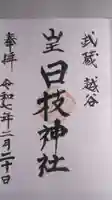 武蔵 越谷
山王
日枝神社
奉拝
令和七年二月二十日